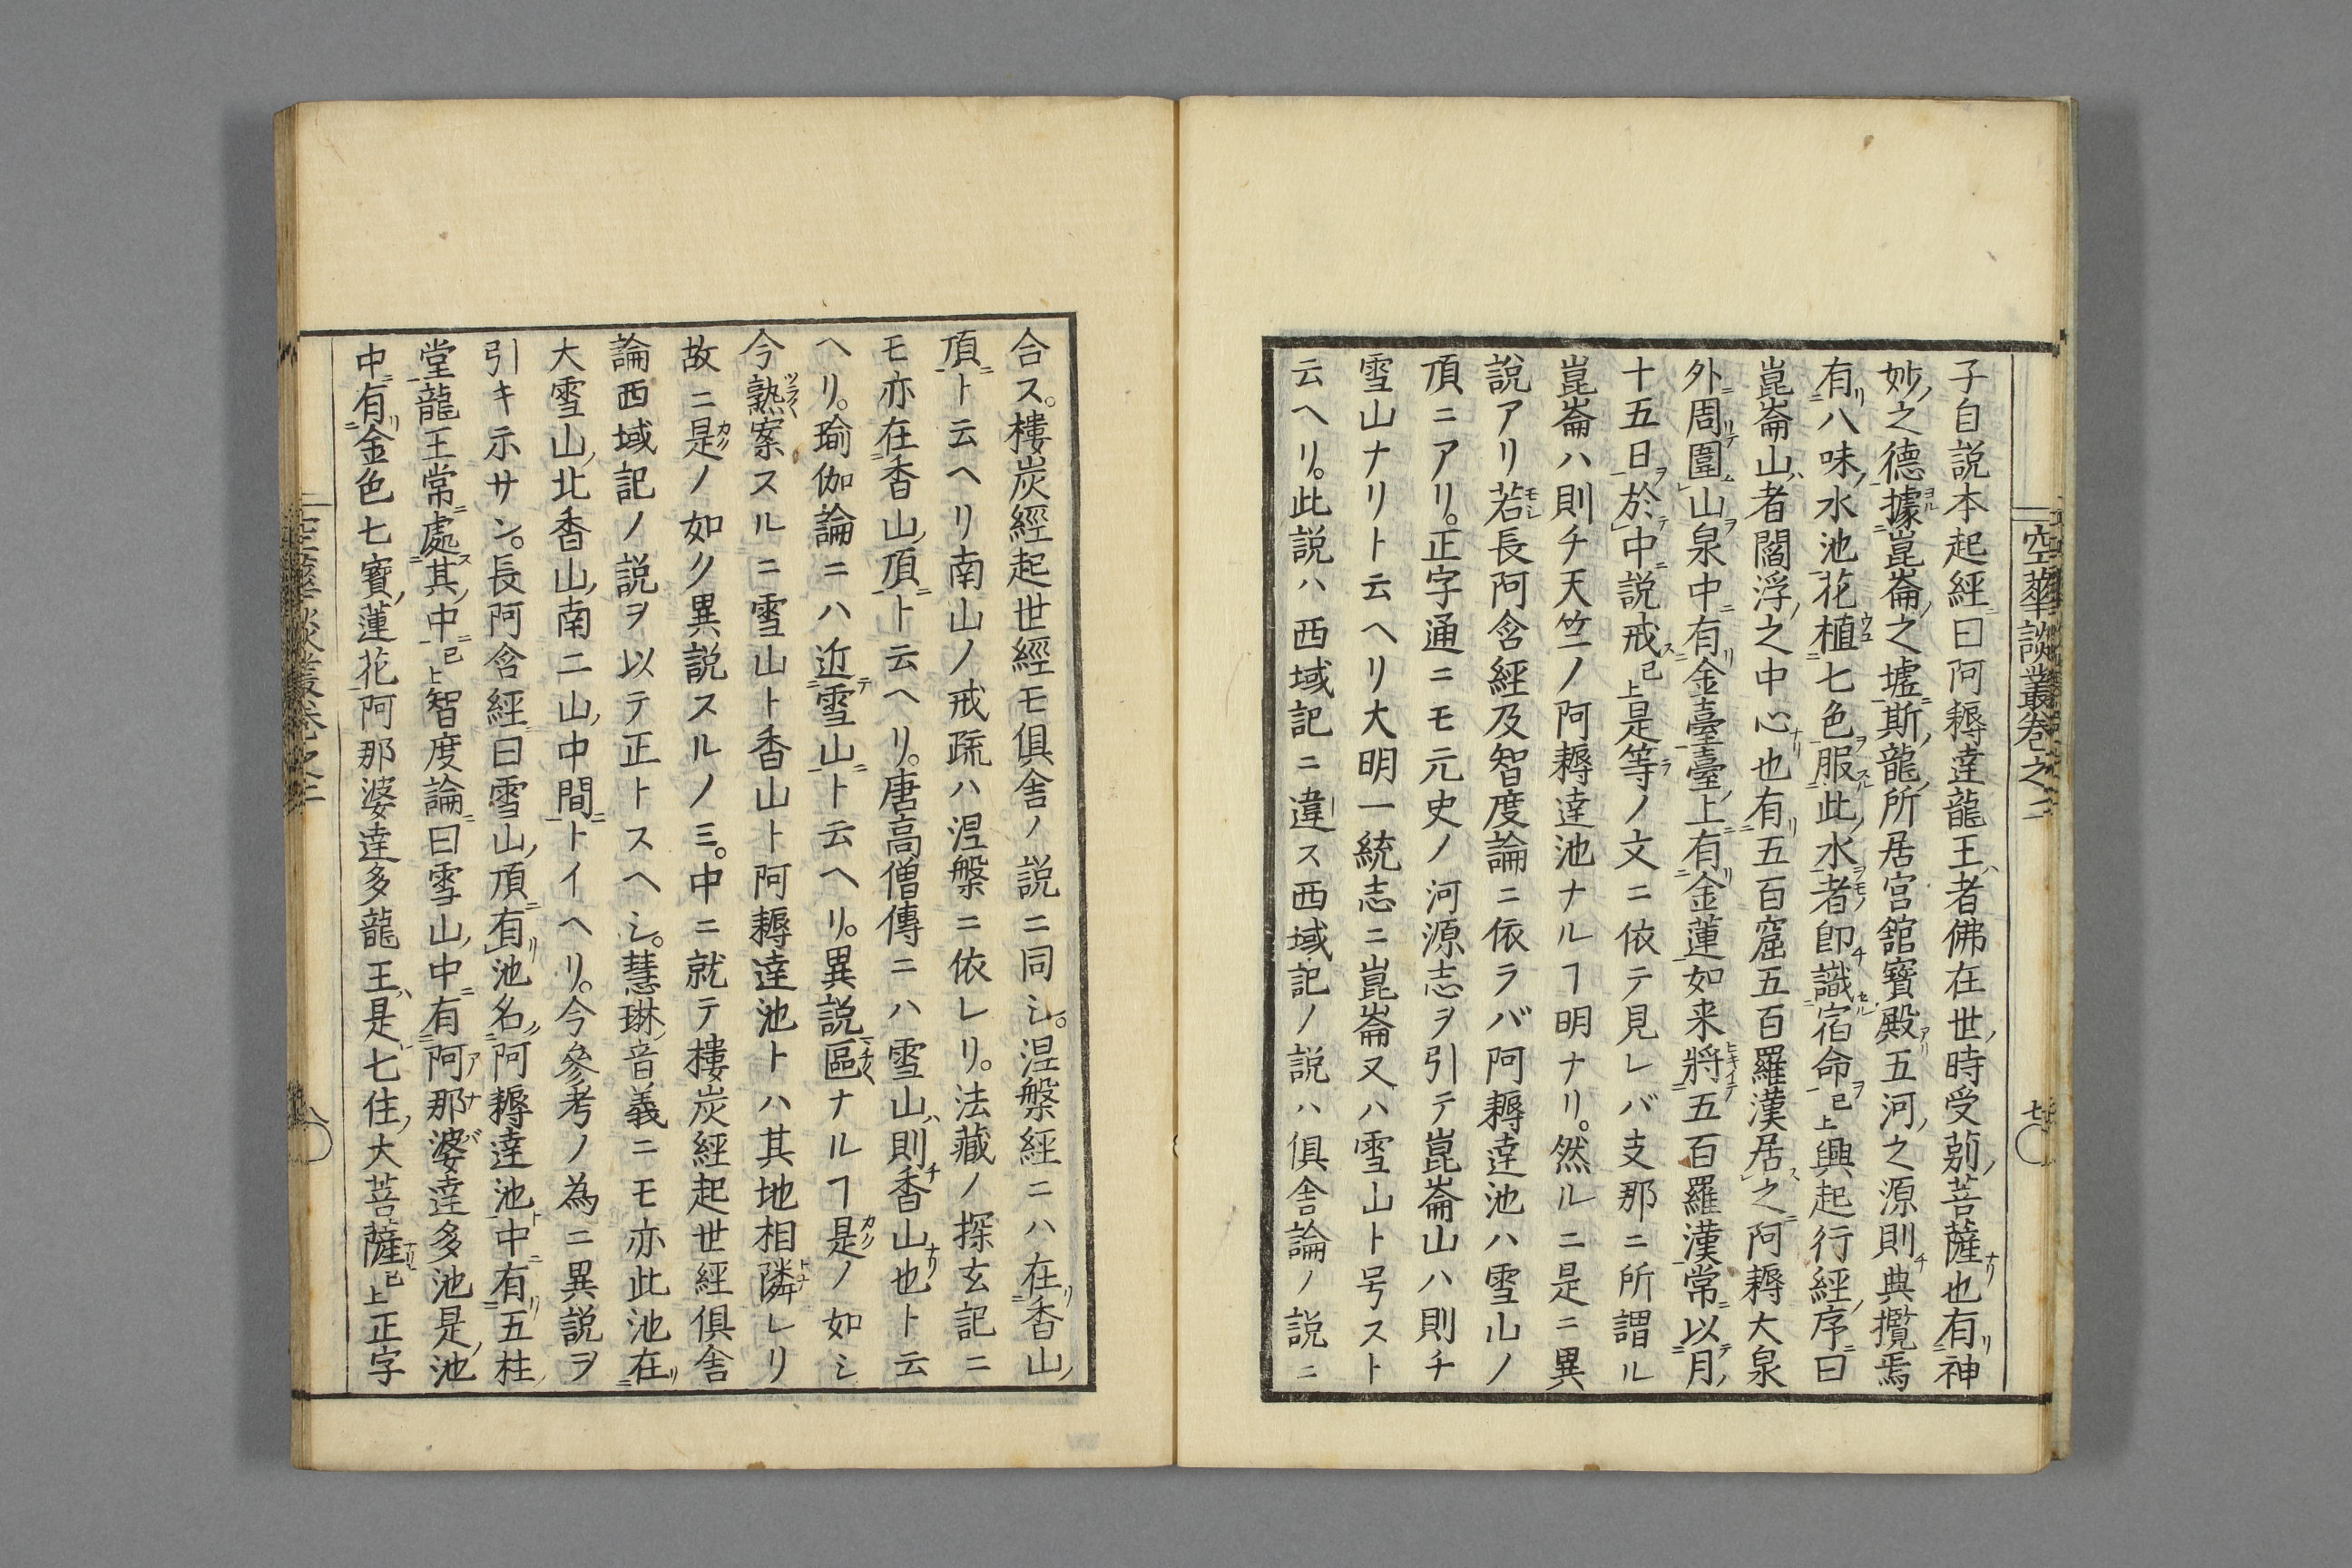 空華談叢卷之二
子自説本起經曰阿耨達龍王者佛在世時受莂菩薩也有神
妙之德據崑崙之墟斯龍所居宮舘寶殿五河之源則典攬焉
有八味水池花植七色服此水者卽識宿命已上興起行經序曰
崑崙山者閻浮之中心也有五百窟五百羅漢居之阿耨大泉
外周圍山泉中有金臺臺上有金蓮如来將五百羅漢常以月
十五日於中説戒已上是等ノ文ニ依テ見レバ支那ニ所謂ル
崑崙ハ則チ天竺ノ阿耨達池ナルヿ明ナリ。然ルニ是ニ異
説アリ若長阿含經及智度論ニ依ラバ阿耨達池ハ雪山ノ
頂ニアリ。正字通ニモ元史ノ河源志ヲ引テ崑崙山ハ則チ
雪山ナリト云ヘリ大明一統志ニ崑崙又ハ雪山ト号スト
云ヘリ。此説ハ西域記ニ違ス西域記ノ説ハ倶舎論ノ説ニ
合ス。樓炭經起世經モ倶舎ノ説ニ同シ。涅槃經ニハ在香山
頂ト云ヘリ南山ノ戒疏ハ涅槃ニ依レリ。法藏ノ探玄記ニ
モ亦在香山頂ト云ヘリ。唐高僧傳ニハ雪山則香山也ト云
ヘリ。瑜伽論ニハ近雪山ト云ヘリ。異説區ナルヿ是ノ如シ
今熟案スルニ雪山ト香山ト阿耨達池トハ其地相隣レリ
故ニ是ノ如ク異説スルノミ。中ニ就テ樓炭經起世經倶舎
論西域記ノ説ヲ以テ正トスヘシ。慧琳音義ニモ亦此池在
大雪山北香山南二山中間トイヘリ。今參考ノ為ニ異説ヲ
引キ示サン。長阿含經曰雪山頂有池名阿耨達池中有五柱
堂龍王常處其中已上智度論曰雪山中有阿那婆達多池是池
中有金色七寶蓮花阿那婆達多龍王是七住大菩薩已上正字